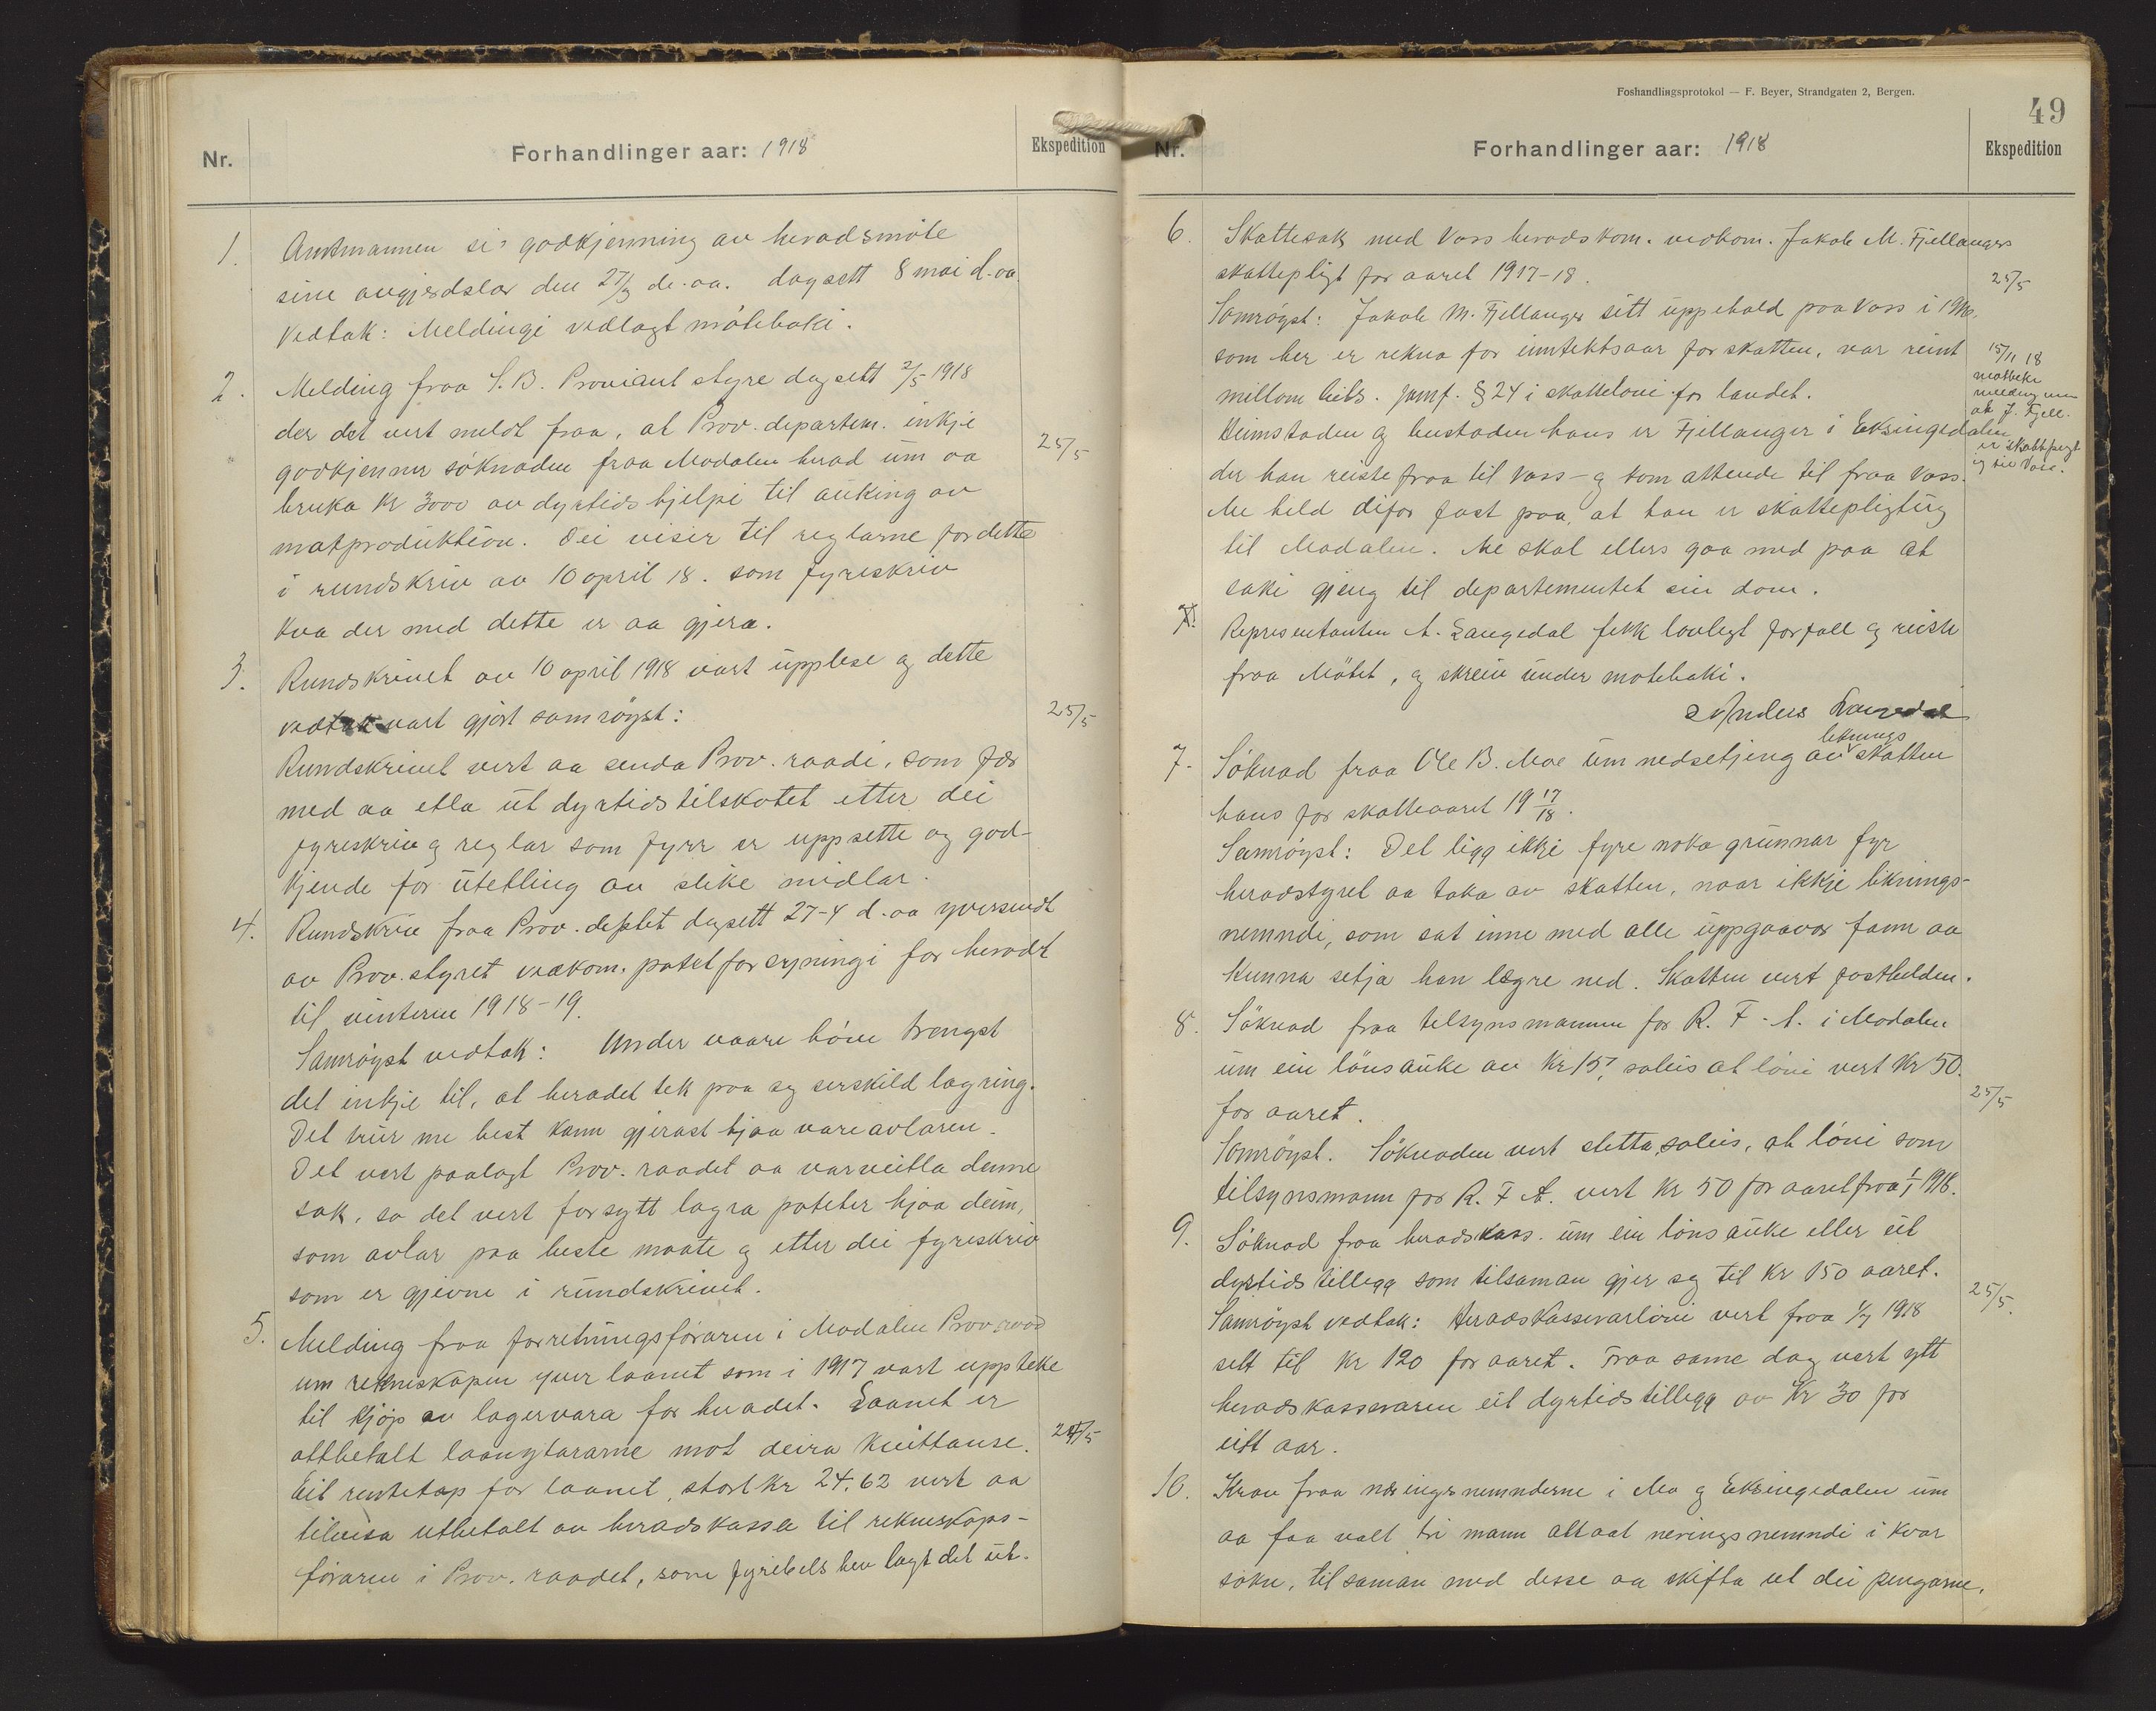 Nr.
Forhandlinger aar: 1918
Ekspedition
1. Amtmannen si godkjenning av heradsmöte
sine avgjerdslor den 27/3 de. aa. dagsett 8 mai d. aa.
Vedtak: Meldingi vedlagt möteboki.
2. Melding fraa S. B. Proviant styre dagsett 2/5 1918
der det vert meldt fraa, at Prov. departem. inkje
godkjenner söknaden fraa Modalen herad um aa
bruka Kr 3000 av dyrtidshjelpi til auking av
matproduktion. Dei viser til reglarne for dette
i rundskriv av 10 april 18. som fyreskriv
kva der med dette er aa gjera.
25/5
3. Rundskrivet av 10 april 1918 vart upplese og dette
vedtak vart gjort samröyst:
25/5
Rundskrivet vert aa senda Prov. raadi, som fær
med aa etla ut dyrtidstilskotet etter dei
fyreskriv og reglar som fyrr er uppsette og god-
kjende for utetling av slike midlar.
4. Rundskriv fraa Prov. deptet dagsett 27-4 d. aa yversendt
av Prov. styret vedkom. potetforsyningi for heradt
til vinteren 1918-19.
Samröyst vedtak: Under vaare höve trengst
det inkje til, at heradet tek paa seg serskild lagring.
Det trur me best kann gjerast hjaa vareavlaren.
Det vert paalagt Prov. raadet aa varveitla denne
sak, so det vert forsytt lagra poteter hjaa deim,
som avlar paa beste maate og etter dei fyreskriv
som er gjevne i rundskrivet.
5. Melding fraa forretningsföraren i Modalen Prov. raad
um rekneskapen yver laanet som i 1917 vart uppteke
til kjöp av lagervara for heradet. Laanet er
attbetalt laangjevararne mot deira kvittanse.
25/5
Eit rentetap for laanet, stort Kr 24,62 vert aa
tilvisa utbetalt av heradskassa til rekneskaps-
föraren i Prov. raadet, som fyrebels hev lagt det ut.
Foshandlingsprotokol — F. Beyer, Strandgaten 2, Bergen.
49
Nr.
Forhandlinger aar: 1918
Ekspedition
6. Skattesak med Voss heradskom. vedkom. Jakob M. Fjellangers
skattepligt for aaret 1917-18.
25/5
Samröyst: Jakob M. Fjellanger sitt uppehald paa Voss i 1916,
som her er rekna for inntektsaar for skatten, var reint
millombils. Jamf. § 24 i skatteloui for landet.
15/11 18
motteke
melding um
at J. Fjell.
er skattpligt-
ig til Voss.
Heimstaden og bustaden hans er Fjellanger i Eksingedalen
der han reiste fraa til Voss - og kom attende til fraa Voss.
Me held difor fast paa, at han er skattepligtug
til Modalen. Me skal ellers gaa med paa at
saki gjeng til departementet sin dom.
7. Representanten A. Langedal fekk lovlegt forfall og reiste
fraa Mötet, og skreiv under moteboki.
Anders Langedal
7. Söknad fraa Ole B. Moe um nedsetjing av liknings skatten
hans for skatteaaret 19 17/18.
Samröyst: Det ligg ikkje fyre noko grunnar fyr
heradstyret aa taka av skatten, naar ikkje liknings-
nemndi, som sat inne med alle uppgaavor fann aa
kunna setja han lægre ned. Skatten vert fasthelden.
8. Söknad fraa tilsynsmannen for R. F. A. i Modalen
um ein lönsauke av Kr 15, soleis at löni vert Kr 50.
for aaret.
25/5
Samröyst. Söknaden vert stetta, soleis, at löni som
tilsynsmann for R. F. A. vert Kr 50 for aaret fraa 1/1 1918.
9. Söknad fraa heradskass. um ein lönsauke eller eit
dyrtidstillegg som tilsaman gjer seg til Kr 150 aaret.
25/5.
Samröyst vedtak: Heradskassararlöni vert fraa 1/7 1918
sett til Kr 120 for aaret. Fraa same dag vert ytt
heradskasseraren eit dyrtidstillegg av Kr 30 for
eitt aar.
10. Krav fraa næringsnemnderne i Mo og Eksingedalen um
aa faa valt tri mann attaat neringsnemndi i kvar
sokn, tilsaman med desse aa skifta ut dei pengarne,